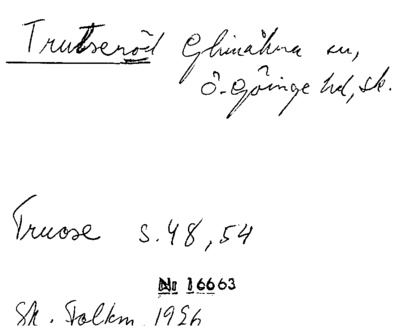 Trutseröd Glimåkra sn,
Ö. Göinge hd, Sk.
Truose s. 48, 54
Nr 16663
Sk. Folkm. 1926